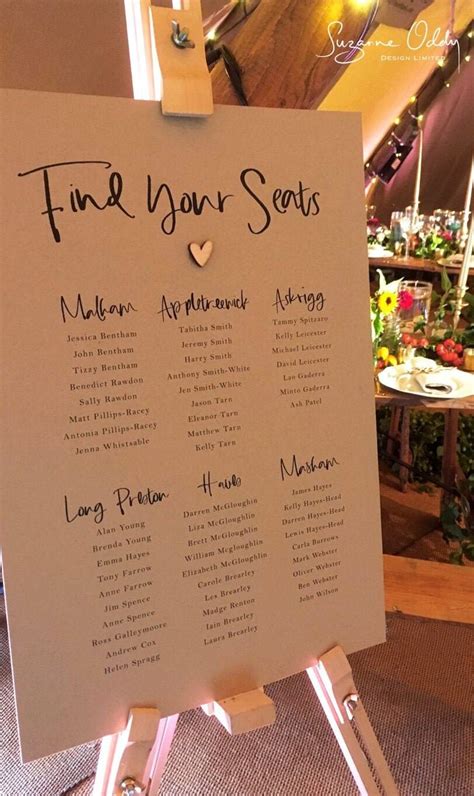 Suzanne Oddy
DESIGN LIMITED
Find Your Seats
Malham
Jessica Bentham
John Bentham
Tizzy Bentham
Benedict Rawdon
Sally Rawdon
Matt Pillips-Racey
Antonia Pillips-Racey
Jenna Whistable
Appletreewick
Tabitha Smith
Jeremy Smith
Harry Smith
Anthony Smith-White
Jen Smith-White
Jason Tarn
Eleanor Tarn
Matthew Tarn
Kelly Tarn
Askrigg
Tammy Spitzaro
Kelly Leicester
Michael Leicester
David Leicester
Lan Gaderra
Minto Gaderra
Ash Patel
Long Preston
Alan Young
Brenda Young
Emma Hayes
Tony Farrow
Anne Farrow
Jim Spence
Anne Spence
Ross Galleymoore
Andrew Cox
Helen Spragg
Hawes
Darren McGloughin
Liza McGloughlin
Brett McGloughlin
William Mcgloughlin
Elizabeth McGloughlin
Carole Brearley
Les Brearley
Madge Renton
Iain Brearley
Laura Brearley
Masham
James Hayes
Kelly Hayes-Head
Darren Hayes-Head
Lewis Hayes-Head
Carla Burrows
Mark Webster
Oliver Webster
Ben Webster
John Wilson